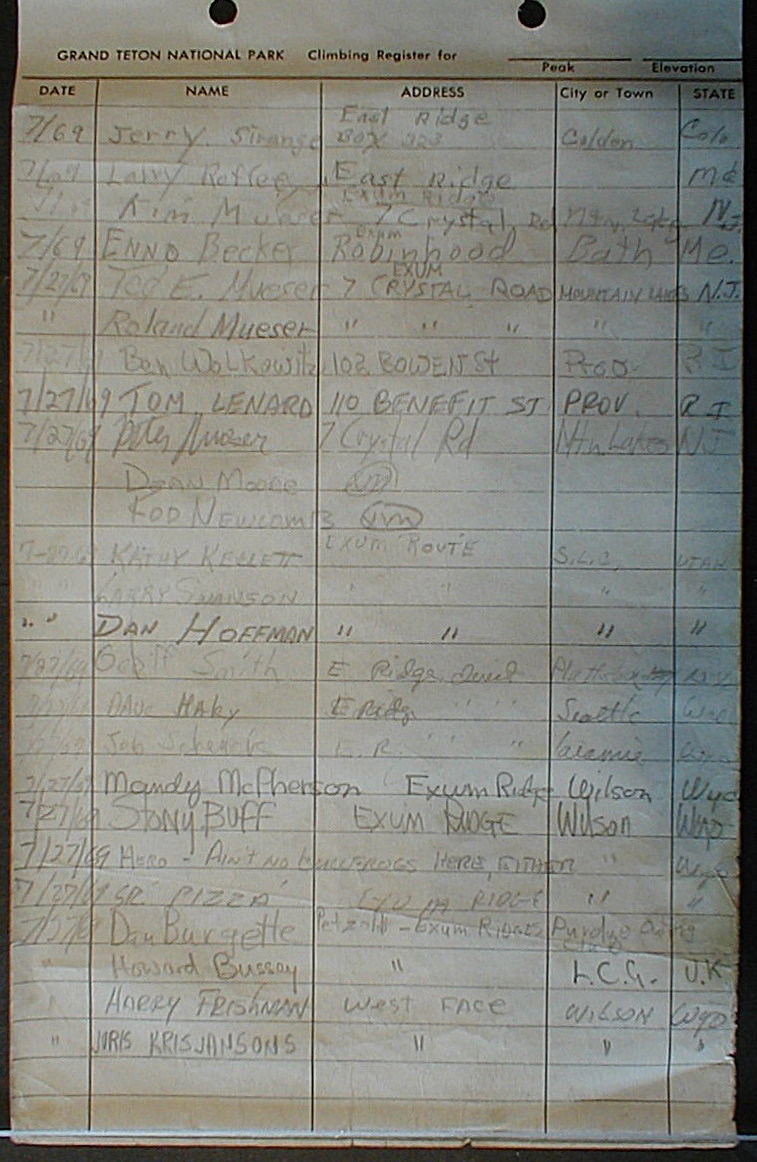 GRAND TETON NATIONAL PARK Climbing Register for
Peak Elevation
DATE NAME ADDRESS City or Town STATE
East Ridge
7/69 Jerry Strange Box 323 Golden Colo
Larry East Ridge Me
Exum Ridge
Kim Mueser 7 Crystal Rd Mtn. Lakes N.J.
Exum
7/69 ENNO Becker Robinhood Bath Me.
EXUM
7/27/69 Ted E. Mueser 7 CRYSTAL ROAD MOUNTAIN LAKES N.J.
" Roland Mueser " " " " "
7/27/69 Ben Wolkowitz 102 BOWEN St Prov. R I
7/27/69 TOM LENARD 110 BENEFIT ST PROV. R I
7/27/69 Peter Mueser 7 Crystal Rd Mtn Lakes NJ
Dean Moore
ROD NEWCOMB
EXUM ROUTE
7-27-69 KATHY S.L.C. UTAH
" " LARRY SWANSON " " " "
" " DAN HOFFMAN " " " "
7/27/69 Geoff Smith E Ridge
7/27/69 DAVE E Ridge " " " Seattle
E.R. " " " Laramie
7/27/69 Mandy McPherson Exum Ridge Wilson Wyo
7/27/69 STONY BUFF EXUM RIDGE Wilson Wyo
7/27/69 HERO - AIN'T NO BULLFROGS HERE, EITHER " Wyo
7/27/69 SR. PIZZA EXUM RIDGE " "
7/27/69 Dan Burgette Petzoldt - Exum Ridges Purdue Outing
Club
" Howard Bussey " L.C.G. U.K.
" HARRY FRISHMAN WEST FACE WILSON Wyo
" JURIS KRISJANSONS " " "